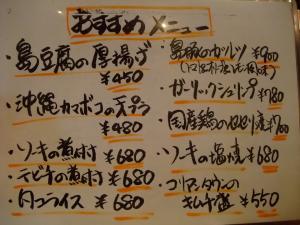 おすすめメニュー
・島豆腐の厚揚げ
¥450
・沖縄カマボコの天ぷら
¥480
・ソーキの煮付 ¥680
・テビチの煮付 ¥680
・タコライス ¥680
・島豚のガーリック ¥900
・ガーリックシュリンプ ¥780
・国産鶏のせせり焼 ¥700
・ソーキの塩焼 ¥680
・コリアンタウンの
キムチ盛 ¥550